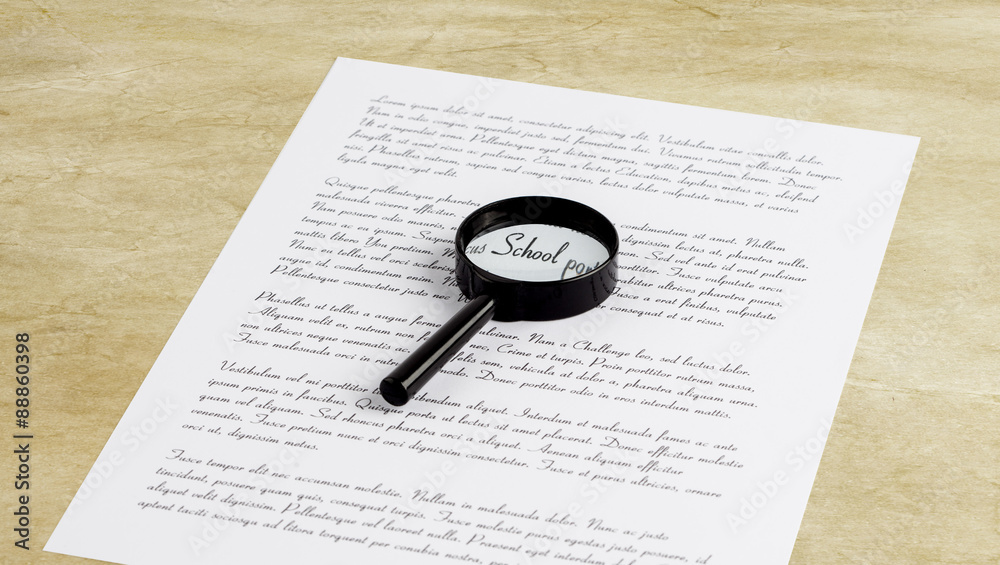 Lorem ipsum dolor sit amet, consectetur adipiscing elit. Vestibulum vitae convallis dolor.
Nam in odio congue, imperdiet justo sed, fermentum dui. Vivamus rutrum sollicitudin tempor.
Ut et imperdiet arna. Pellentesque eget dictum magna, sagittis fermentum lorem. Donec
fringilla sit amet risus ac pulvinar. Etiam a lectus Education, dapibus metus ac, eleifend
nisi. Phasellus rutrum, sapien sed congue varius, lectus dolor vulputate massa, et varius
ligula magna eget velit.
Quisque pellentesque pharetra condimentum sit amet. Nullam
malesuada viverra efficitur dignissim lectus at, pharetra nulla.
Nam posuere odio mauris, Sed vel ante id erat pulvinar
tempus ac urna. Suspen facilisis. Vivamus vulputate arcu
mattis libero You pretium. cus School port rabitur ultrices pharetra purus.
Nunc eu tellus vel orci scelerisq Fusce a erat finibus, vulputate
augue id, condimentum enim. consequat et at risus.
Pellentesque consectetur justo nec
Phasellus at tellus a augue ferme pulvinar. Nam a Challenge leo, sed luctus dolor.
Aliquam velit ex, rutrum non nec, Crime et turpis. Proin porttitor rutrum massa,
non ultrices neque varius felis sem, vehicula at dolor a, pharetra aliquam arna.
Fusce malesuada orci in rutr Donec porttitor odio in eros interdum mattis.
Vestibulum vel mi porttitor bibendum aliquet. Interdum et malesuada fames ac ante
ipsum primis in faucibus. Quisque porta ut lectus sit amet placerat. Donec efficitur molestie
quam vel aliquam. Sed rhoncus pharetra orci a aliquet. Aenean aliquam efficitur
venenatis. Fusce pretium nunc et orci dignissim consectetur. Fusce et purus ultricies, ornare
orci ut, dignissim metus.
Fusce tempor elit nec accumsan molestie. Nullam in malesuada dolor. Nam ac justo
tincidunt, posuere quam quis, consequat turpis. Fusce molestie purus egestas justo posuere, id
aliquet velit dignissim. Pellentesque vel laoreet nulla. Praesent eget interdum
aptent taciti sociosqu ad litora torquent per conubia nostra,
Adobe Stock | #88860398